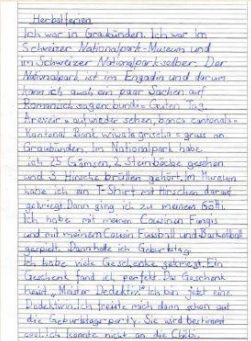 Herbstferien
Ich war in Graubünden. Ich war im
Schweizer Nationalpark-Museum und
im Schweizer Nationalpark selber. Der
Nationalpark ist im Engadin und darum
kann ich auch ein paar Sachen auf
Romanisch sagen: bun di = Guten Tag,
Arevair = aufwiedersehen, banca cantonala =
Kantonal Bank viva la grischa = gruss an
Graubünden. Im Nationalpark habe
ich 25 Gämsen, 2 Steinböcke gesehen
und 3 Hirsche brüllen gehört. Im
habe ich ein T-Shirt mit Hirschen darauf
gekriegt. Dann ging ich zu meinem Götti.
Ich habe mit meinen Cousinen Fangis
und mit meinem Cousin Fussball und Basketball
gespielt. Dann hatte ich Geburtstag.
Ich habe viele Geschenke gekriegt. Ein
Geschenk fand ich perfekt. Das Geschenk
heisst „Meister Dedektiv". Ich bin jetzt eine
Dedektivin. Ich freute mich dann schon auf
die Geburtstagsparty. Sie wird
konnte nicht an die Chilbi.